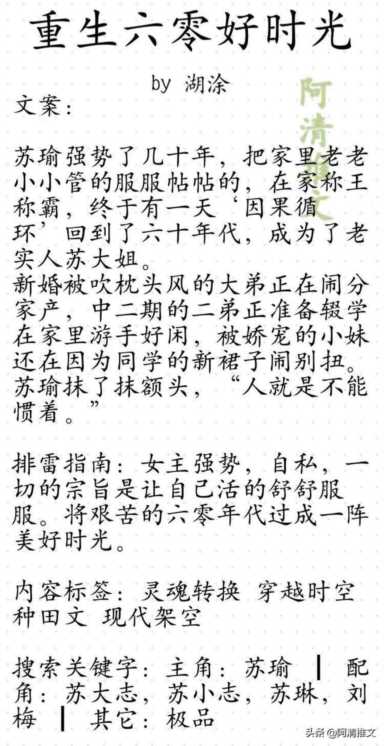 重生六零好时光
by 湖涂
阿清推文
文案：
苏瑜强势了几十年，把家里老老
小小管的服服帖帖的，在家称王
称霸，终于有一天‘因果循
环’回到了六十年代，成为了老
实人苏大姐。
新婚被吹枕头风的大弟正在闹分
家产，中二期的二弟正准备辍学
在家里游手好闲，被娇宠的小妹
还在因为同学的新裙子闹别扭。
苏瑜抹了抹额头，“人就是不能
惯着。”
排雷指南：女主强势，自私，一
切的宗旨是让自己活的舒舒服
服。将艰苦的六零年代过成一阵
美好时光。
内容标签：灵魂转换 穿越时空
种田文 现代架空
搜索关键字：主角：苏瑜 ┃ 配
角：苏大志，苏小志，苏琳，刘
梅 ┃ 其它：极品
头条 @阿清推文